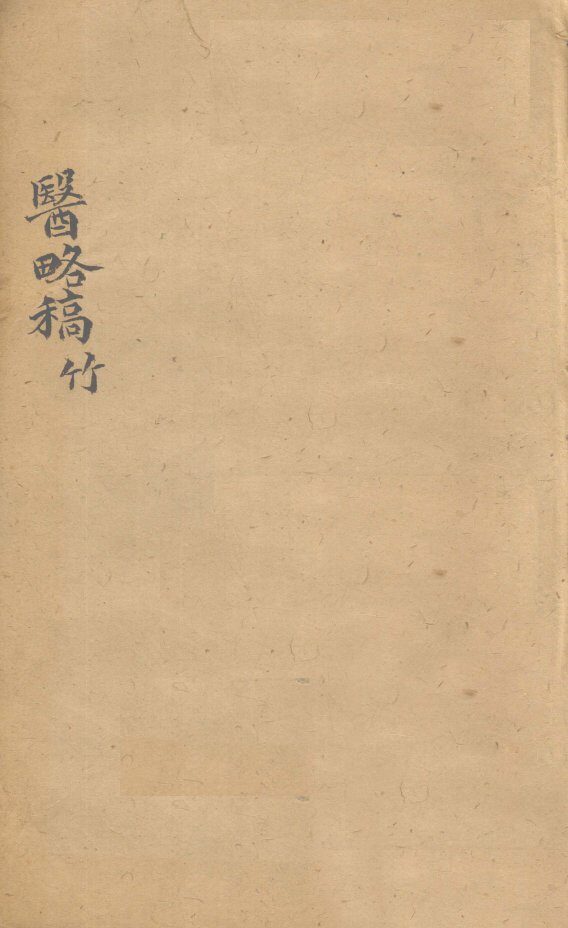 醫略稿 竹